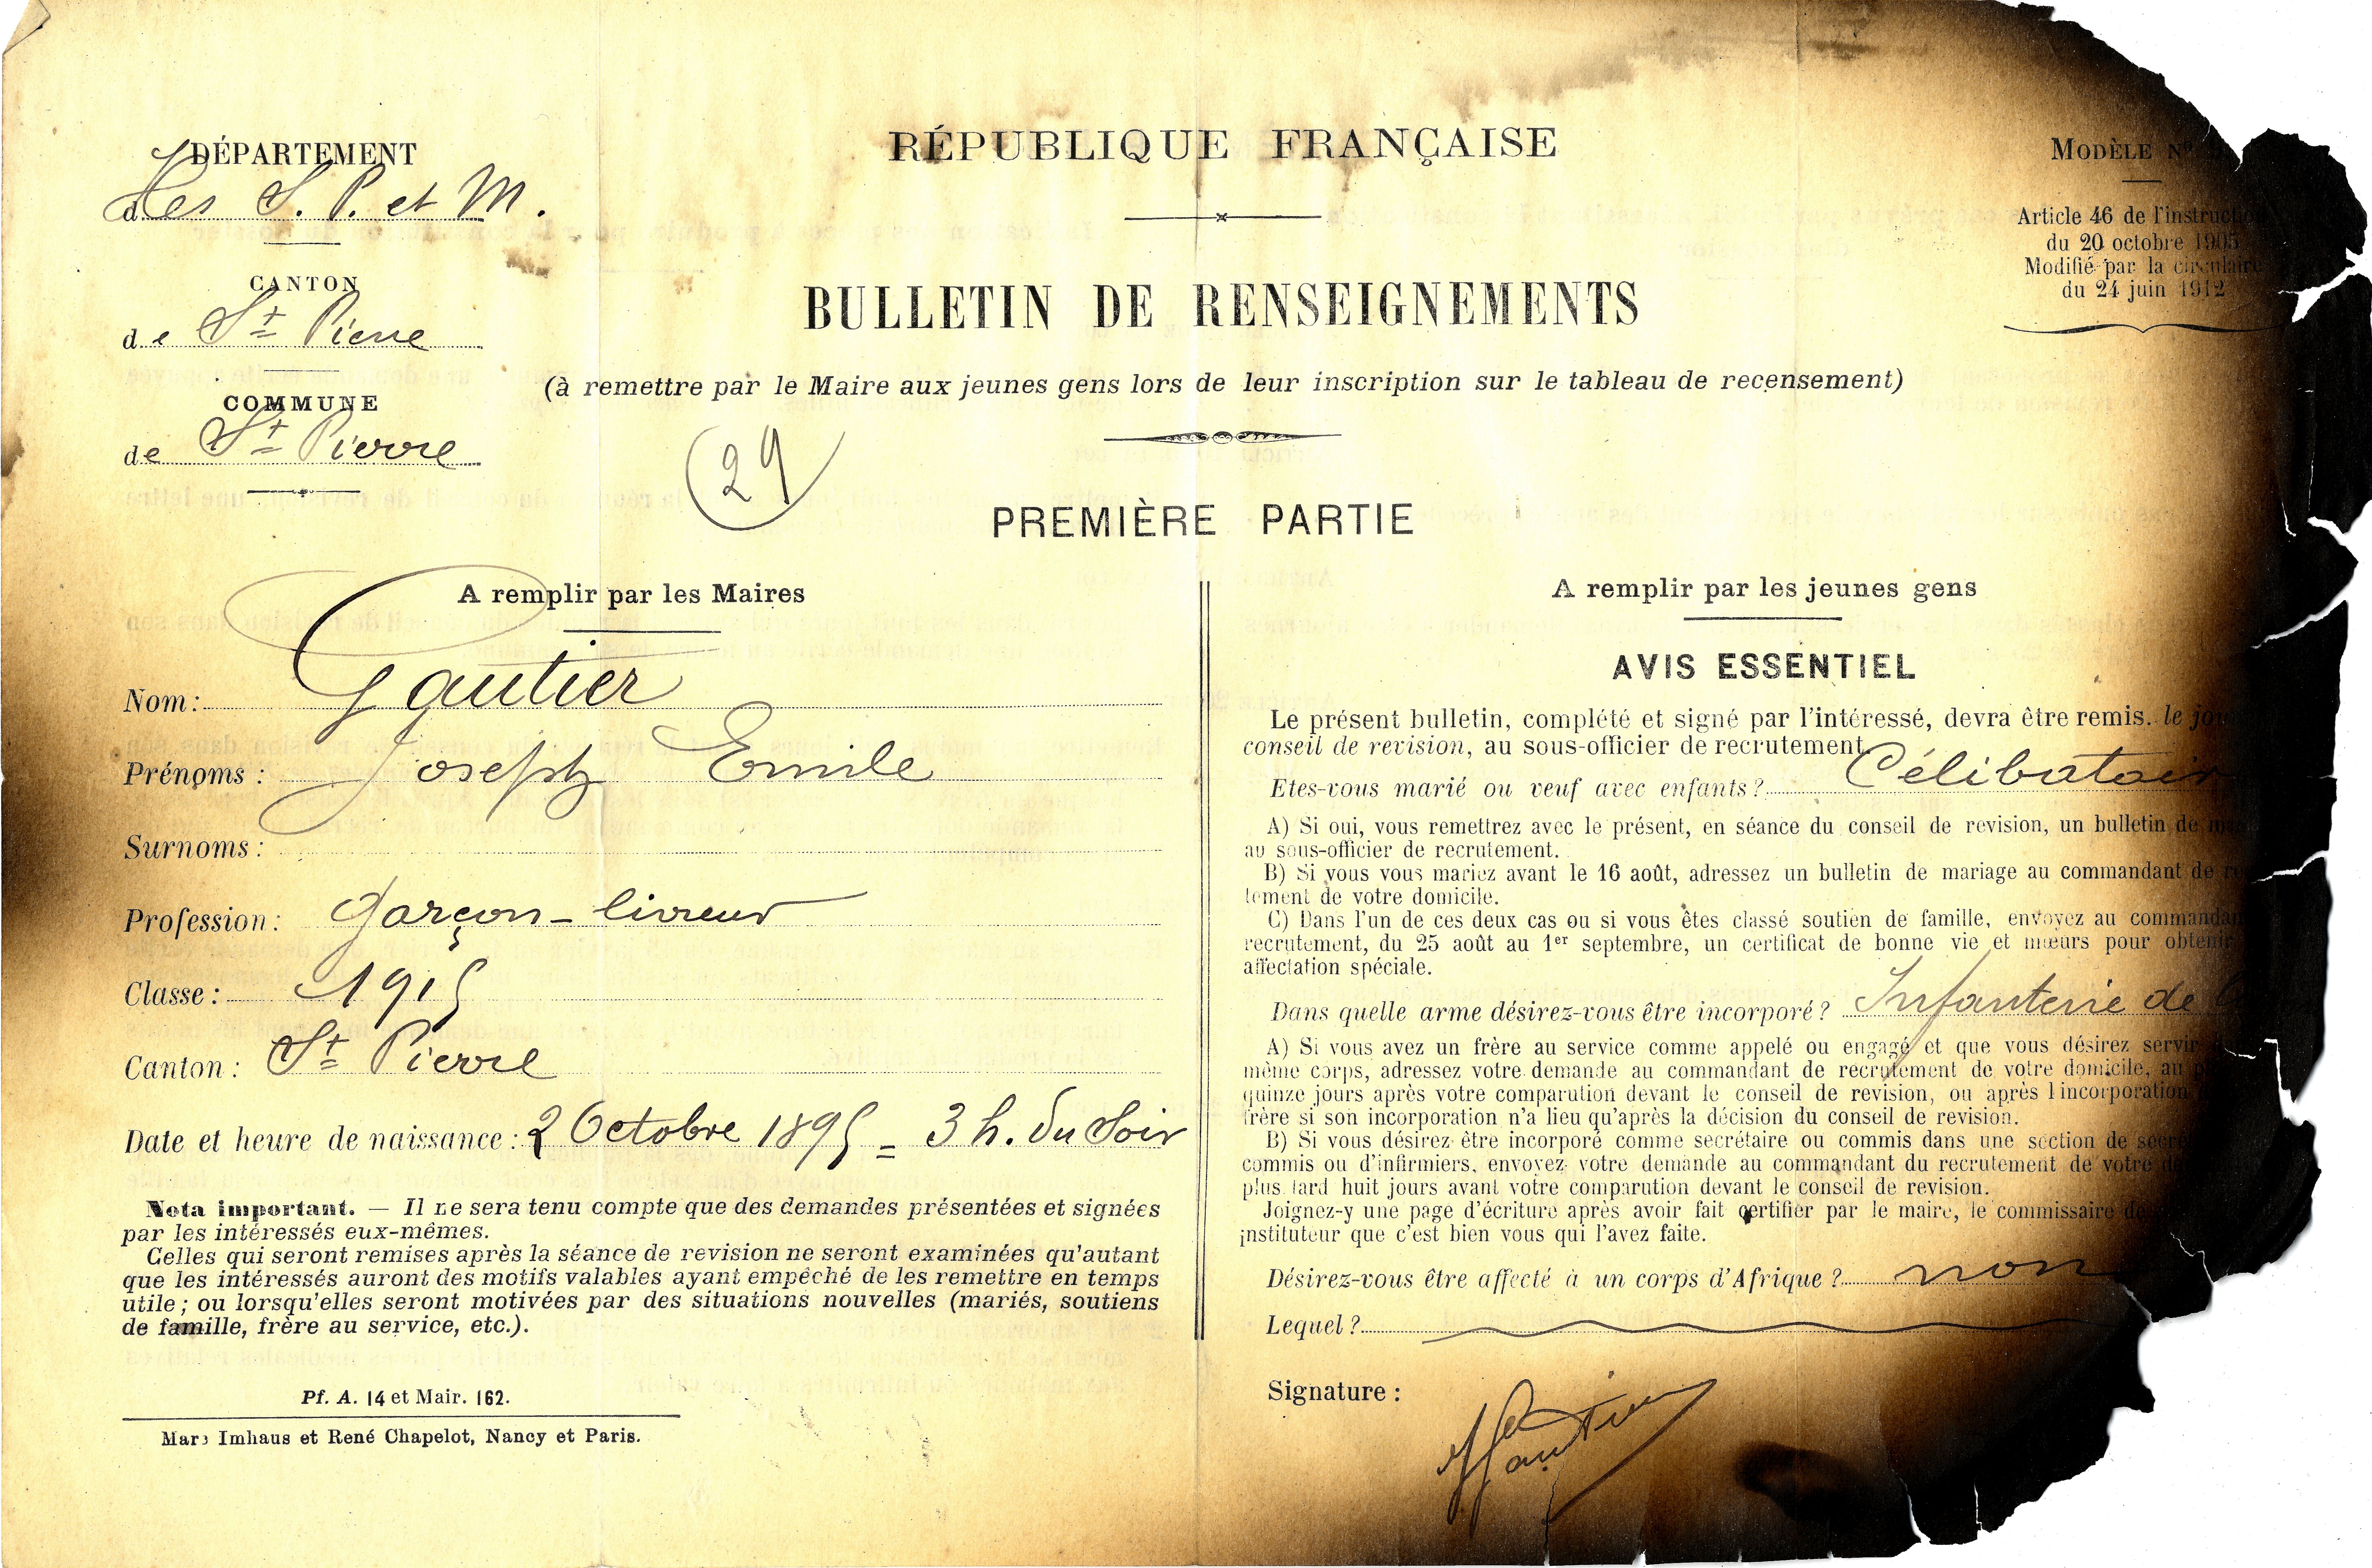 DÉPARTEMENT
des S. P. et M.
CANTON
de St Pierre
COMMUNE
de St Pierre
RÉPUBLIQUE FRANÇAISE
BULLETIN DE RENSEIGNEMENTS
(à remettre par le Maire aux jeunes gens lors de leur inscription sur le tableau de recensement)
29
PREMIÈRE PARTIE
MODÈLE No
Article 46 de l'instruction
du 20 octobre 1905
Modifié par la circulaire
du 24 juin 1912
A remplir par les Maires
Nom : Gautier
Prénoms : Joseph Emile
Surnoms :
Profession : Garçon-livreur
Classe : 1915
Canton : St Pierre
Date et heure de naissance : 2 Octobre 1895 = 3 h. du Soir
Nota important. — Il ne sera tenu compte que des demandes présentées et signées
par les intéressés eux-mêmes.
Celles qui seront remises après la séance de revision ne seront examinées qu'autant
que les intéressés auront des motifs valables ayant empêché de les remettre en temps
utile ; ou lorsqu'elles seront motivées par des situations nouvelles (mariés, soutiens
de famille, frère au service, etc.).
Pf. A. 14 et Mair. 162.
Marc Imhaus et René Chapelot, Nancy et Paris.
A remplir par les jeunes gens
AVIS ESSENTIEL
Le présent bulletin, complété et signé par l'intéressé, devra être remis. le
conseil de revision, au sous-officier de recrutement
Etes-vous marié ou veuf avec enfants ? Célibatair
A) Si oui, vous remettrez avec le présent, en séance du conseil de revision, un bulletin de
au sous-officier de recrutement.
B) Si vous vous mariez avant le 16 août, adressez un bulletin de mariage au commandant de
tement de votre domicile.
C) Dans l'un de ces deux cas ou si vous êtes classé soutien de famille, envoyez au commandan
recrutement, du 25 août au 1er septembre, un certificat de bonne vie et mœurs pour obtenir
affectation spéciale.
Dans quelle arme désirez-vous être incorporé ? Infanterie de
A) Si vous avez un frère au service comme appelé ou engagé et que vous désirez servir
même corps, adressez votre demande au commandant de recrutement de votre domicile, au
quinze jours après votre comparution devant le conseil de revision, ou après l'incorporation
frère si son incorporation n'a lieu qu'après la décision du conseil de revision.
B) Si vous désirez être incorporé comme secrétaire ou commis dans une section de
commis ou d'infirmiers, envoyez votre demande au commandant du recrutement de votre
plus tard huit jours avant votre comparution devant le conseil de revision.
Joignez-y une page d'écriture après avoir fait certifier par le maire, le commissaire
instituteur que c'est bien vous qui l'avez faite.
Désirez-vous être affecté à un corps d'Afrique ? non
Lequel ?
Signature : Gautier